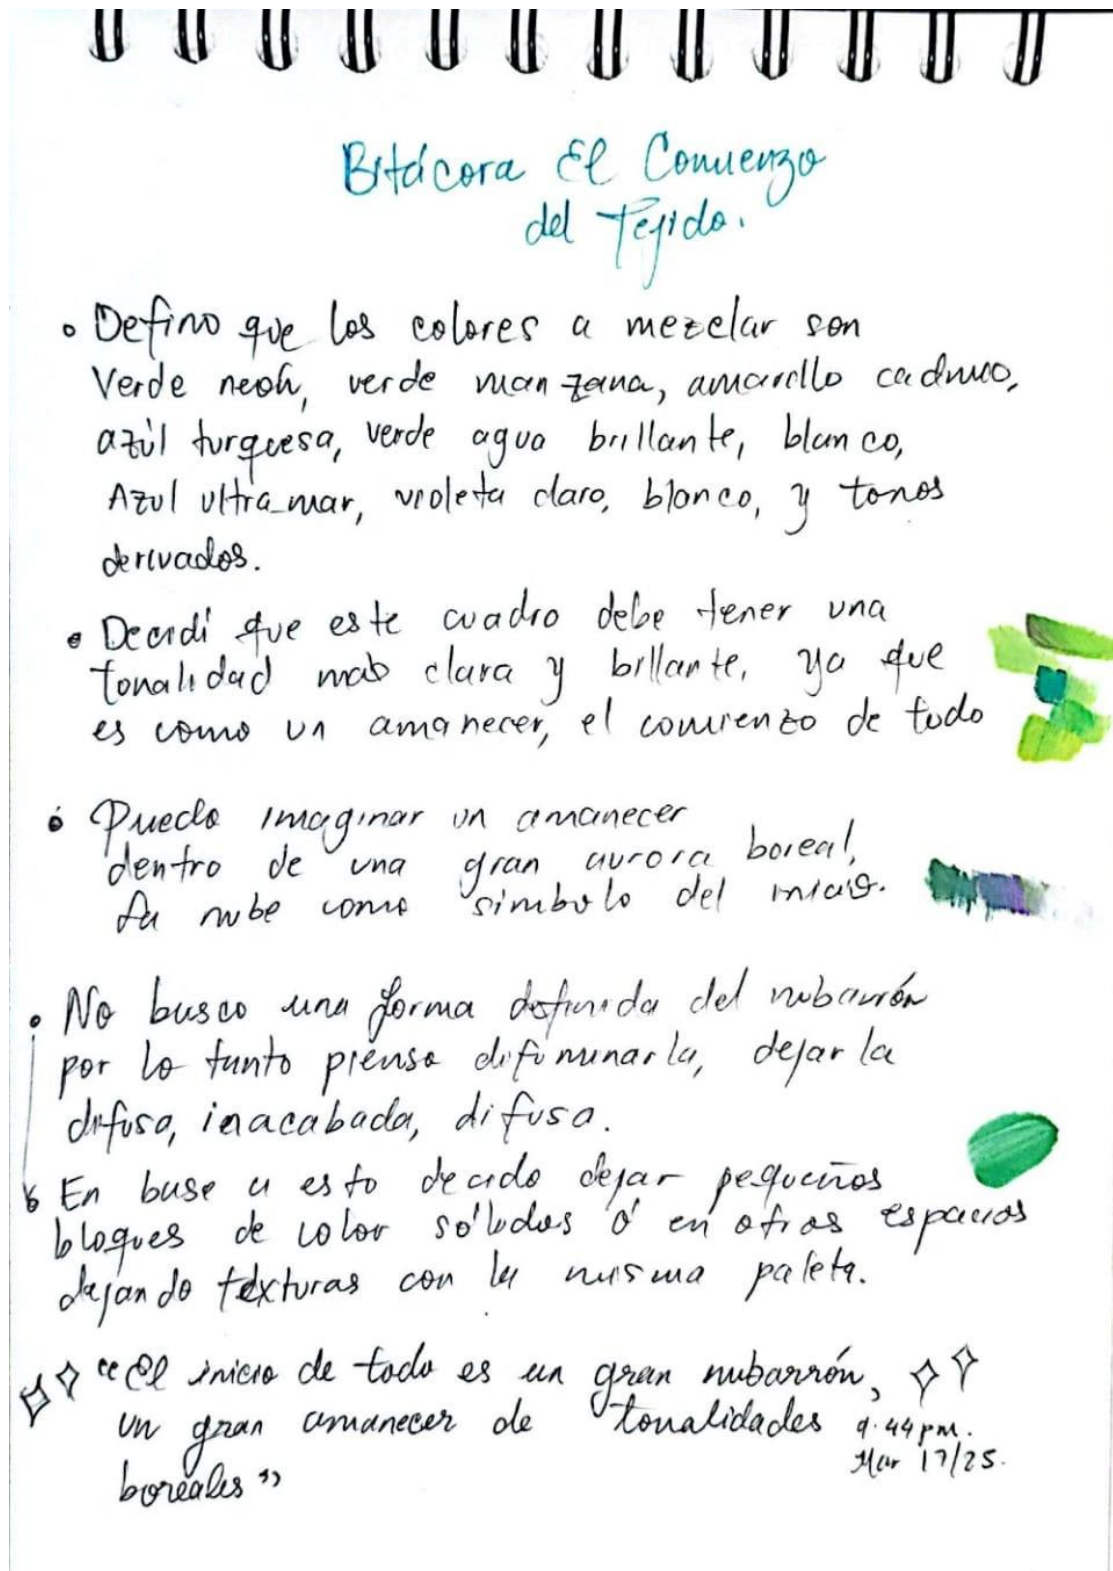 Bitácora El Comienzo
del Tejido.
Defino que los colores a mezclar son
Verde neón, verde manzana, amarillo cadmio,
azúl turquesa, verde agua brillante, blanco,
Azul ultra_mar, violeta claro, blanco, y tonos
derivados.
Decidí que este cuadro debe tener una
tonalidad mas clara y brillante, ya que
es como un amanecer, el comienzo de todo
Puedo imaginar un amanecer
dentro de una gran aurora boreal,
La nube como simbolo del inicio.
No busco una forma definida del nubarrón
por lo tanto pienso difuminarla, dejarla
difusa, inacabada, difusa.
En base a esto decido dejar pequeños
bloques de color sólidos ó en otros espacios
dejando texturas con la misma paleta.
"El inicio de todo es un gran nubarrón,
un gran amanecer de tonalidades
boreales"
9.44pm.
Mar 17/25.